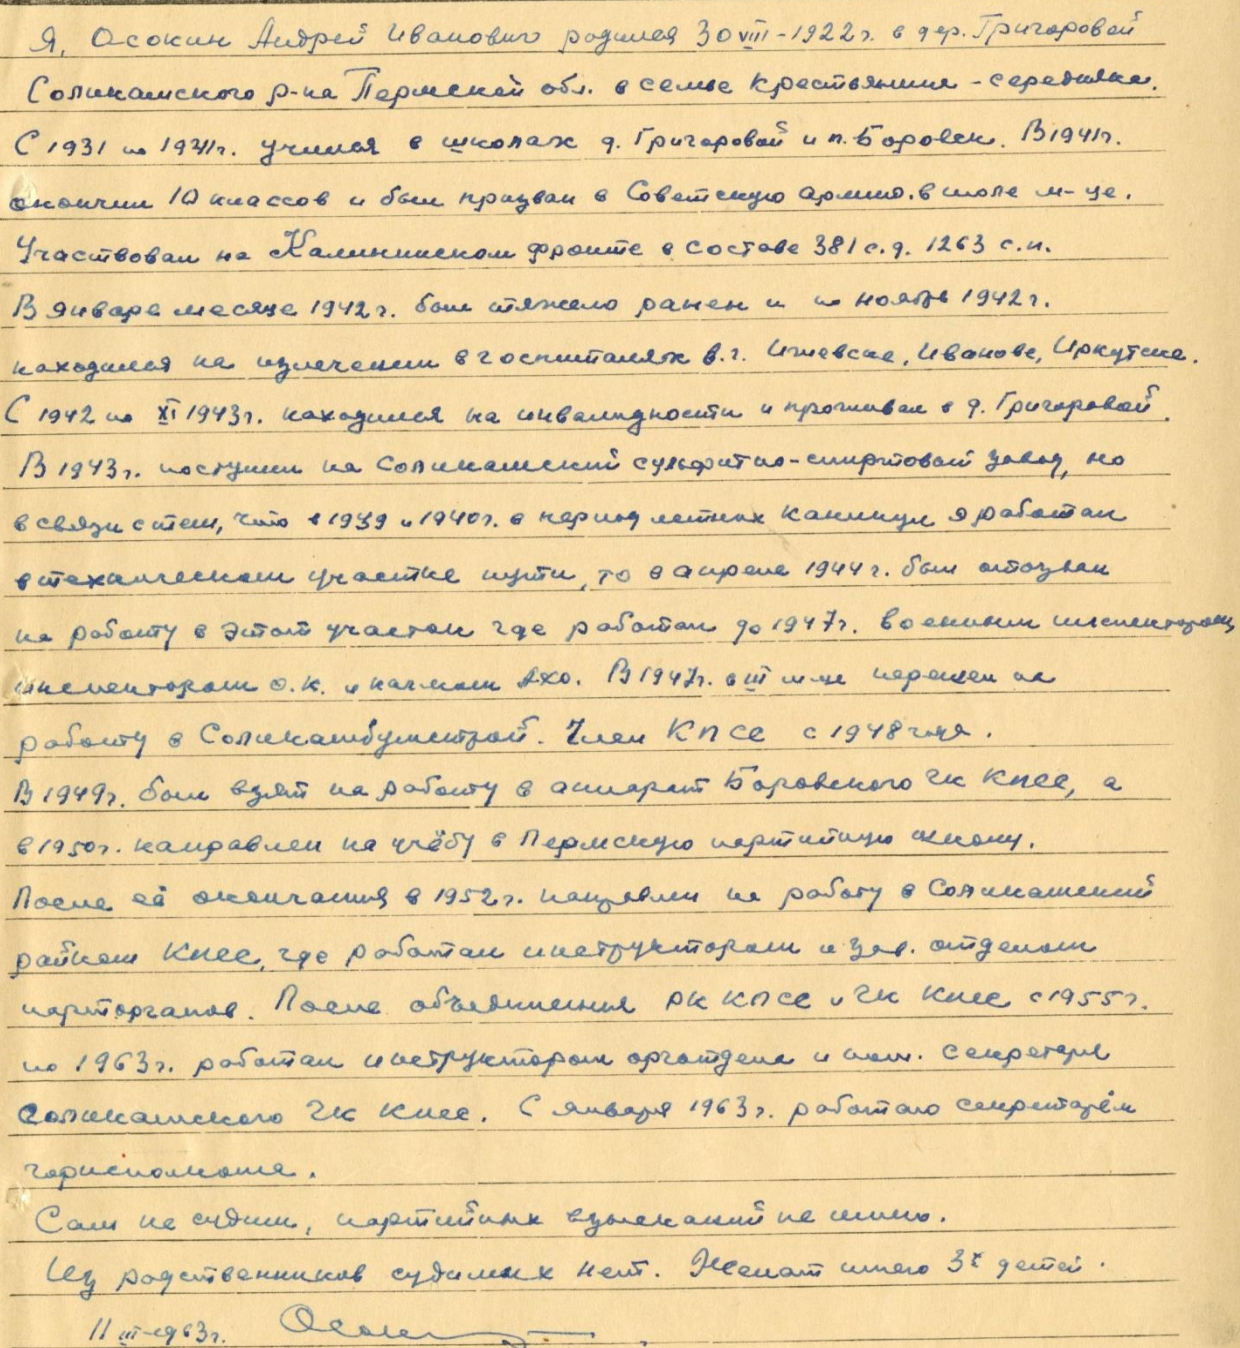 Я, Осокин Андрей Иванович родился 30 VIII-1922г. в дер. Григоровой
Соликамского р-на Пермской обл. в семье крестьянина-середняка.
С 1931 по 1941г. учился в школах д. Григоровой и п. Боровск. В 1941г.
окончил 10 классов и был призван в Советскую армию. в июле м-це.
Участвовал на Калининском фронте в составе 381 с.д. 1263 с.п.
В январе месяце 1942г. был тяжело ранен и по ноябрь 1942г.
находился на излечении в госпиталях в.г. Ижевске, Иванове, Иркутске.
С 1942 по XI 1943г. находился на инвалидности и проживал в д. Григоровой.
В 1943г. поступил на Соликамский сульфитно-спиртовой завод, но
в связи с тем, что в 1939 и 1940г. в период летних каникул я работал
в техническом участке пути, то в апреле 1944г. был отозван
на работу в этот участок где работал до 1947г. военным инспектором,
инспектором о.к. и начальн АХО. В 1947г. в III м-це перешел на
работу в Соликамбумстрой. Член КПСС с 1948 года.
В 1949г. был взят на работу в аппарат Боровского ГК КПСС, а
в 1950г. направлен на учёбу в Пермскую партийную школу.
После её окончания в 1952г. направлен на работу в Соликамский
райком КПСС, где работал инструктором и зав. отделом
парторганов. После объединения РК КПСС и ГК КПСС с 1955г.
по 1963г. работал инструктором орготдела и пом. секретаря
Соликамского ГК КПСС. С января 1963г. работаю секретарём
горисполкома.
Сам не судим, партийных взысканий не имею.
Из родственников судимых нет. Женат имею 3х детей.
11 III-1963г. Осокин